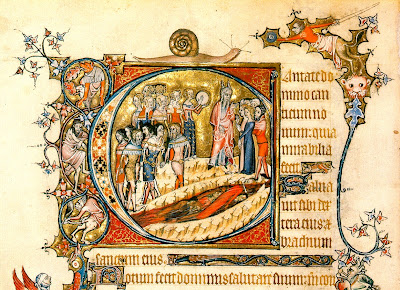 Cantate do
mino can
ticum no
uum: quia
mirabilia
fecit
Salua
uit sibi dex
tera eius a
brachium
sanctum eius.
Notum fecit dominus salutare suum: in con